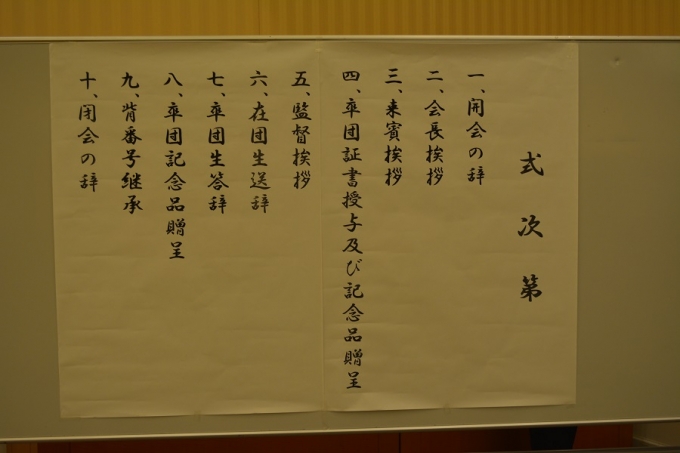 式次第
一、開会の辞
二、会長挨拶
三、来賓挨拶
四、卒団証書授与及び記念品贈呈
五、監督挨拶
六、在団生送辞
七、卒団生答辞
八、卒団記念品贈呈
九、背番号継承
十、閉会の辞